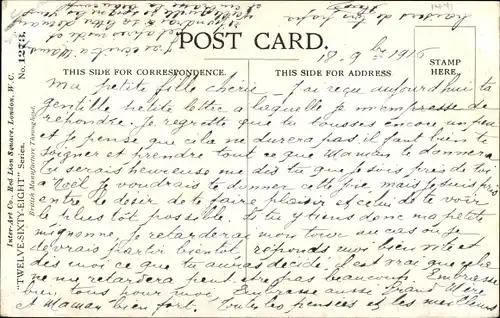 POST CARD.
THIS SIDE FOR CORRESPONDENCE.
THIS SIDE FOR ADDRESS
STAMP
HERE.
Inter-Art Co., Red Lion Square, London, W. C.
"TWELVE-SIXTY-EIGHT" Series.
British Manufacture Throughout.
No. 1273.
18. 9bre 1916
Ma petite fille chérie - J'ai reçu aujourd'hui ta
gentille petite lettre à laquelle je m'empresse de
répondre. Je regrette que tu tousses encore un peu
et je pense que cela ne durera pas il faut bien te
soigner et prendre tout ce que Maman te donnera
Tu serais heureuse me dis tu que je sois près de toi
à Noël Je voudrais te donner cette joie, mais je suis pris
entre le désir de te faire plaisir et celui de te voir
le plus tôt possible. Si tu y tiens donc ma petite
mignonne, je retarderai mon tour au cas où je
devrais partir bientôt réponds moi bien vite et
dis moi ce que tu auras décidé il est vrai que cela
ne me retardera peut être pas beaucoup. Embrasse
bien, tous pour moi, Embrasse aussi Grand Mère
et Maman bien fort. Toutes les pensées et les meilleurs